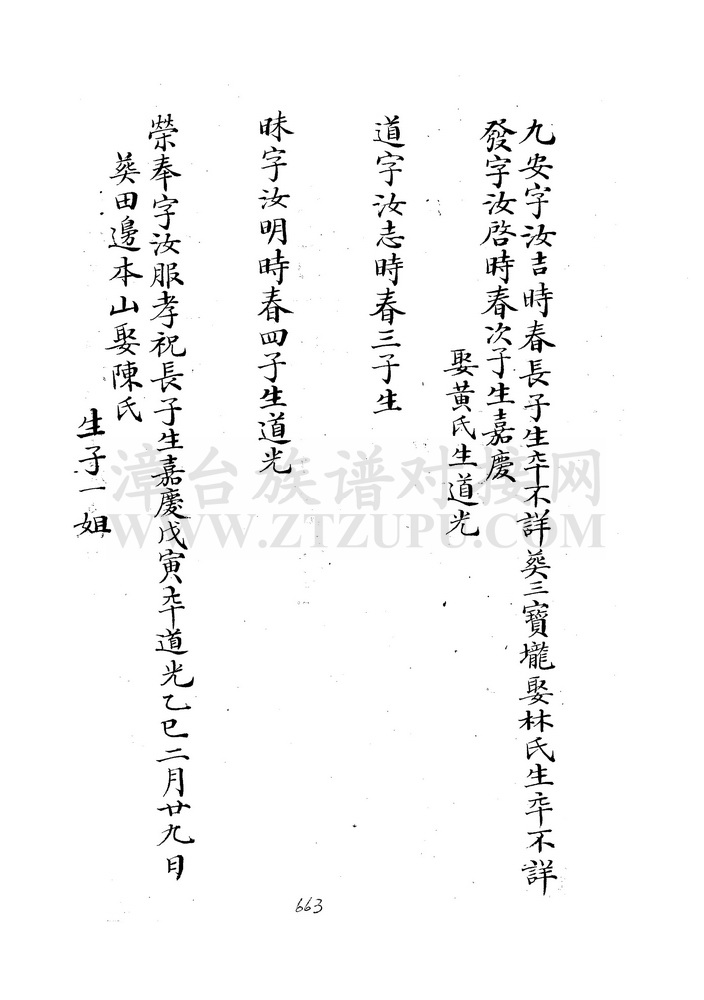 九安字汝吉時春長子生卒不詳葵三寶壠娶林氏生卒不詳
發字汝啓時春次子生嘉慶
娶黄氏生道光
道字汝志時春三子生
昧字汝明時春四子生道光
榮奉字汝服孝祝長子生嘉慶戊寅卒道光乙巳二月廿九日
葵田邊本山娶陳氏
生子一姐
663
漳台族谱对接网
WWW.ZTZUPU.COM